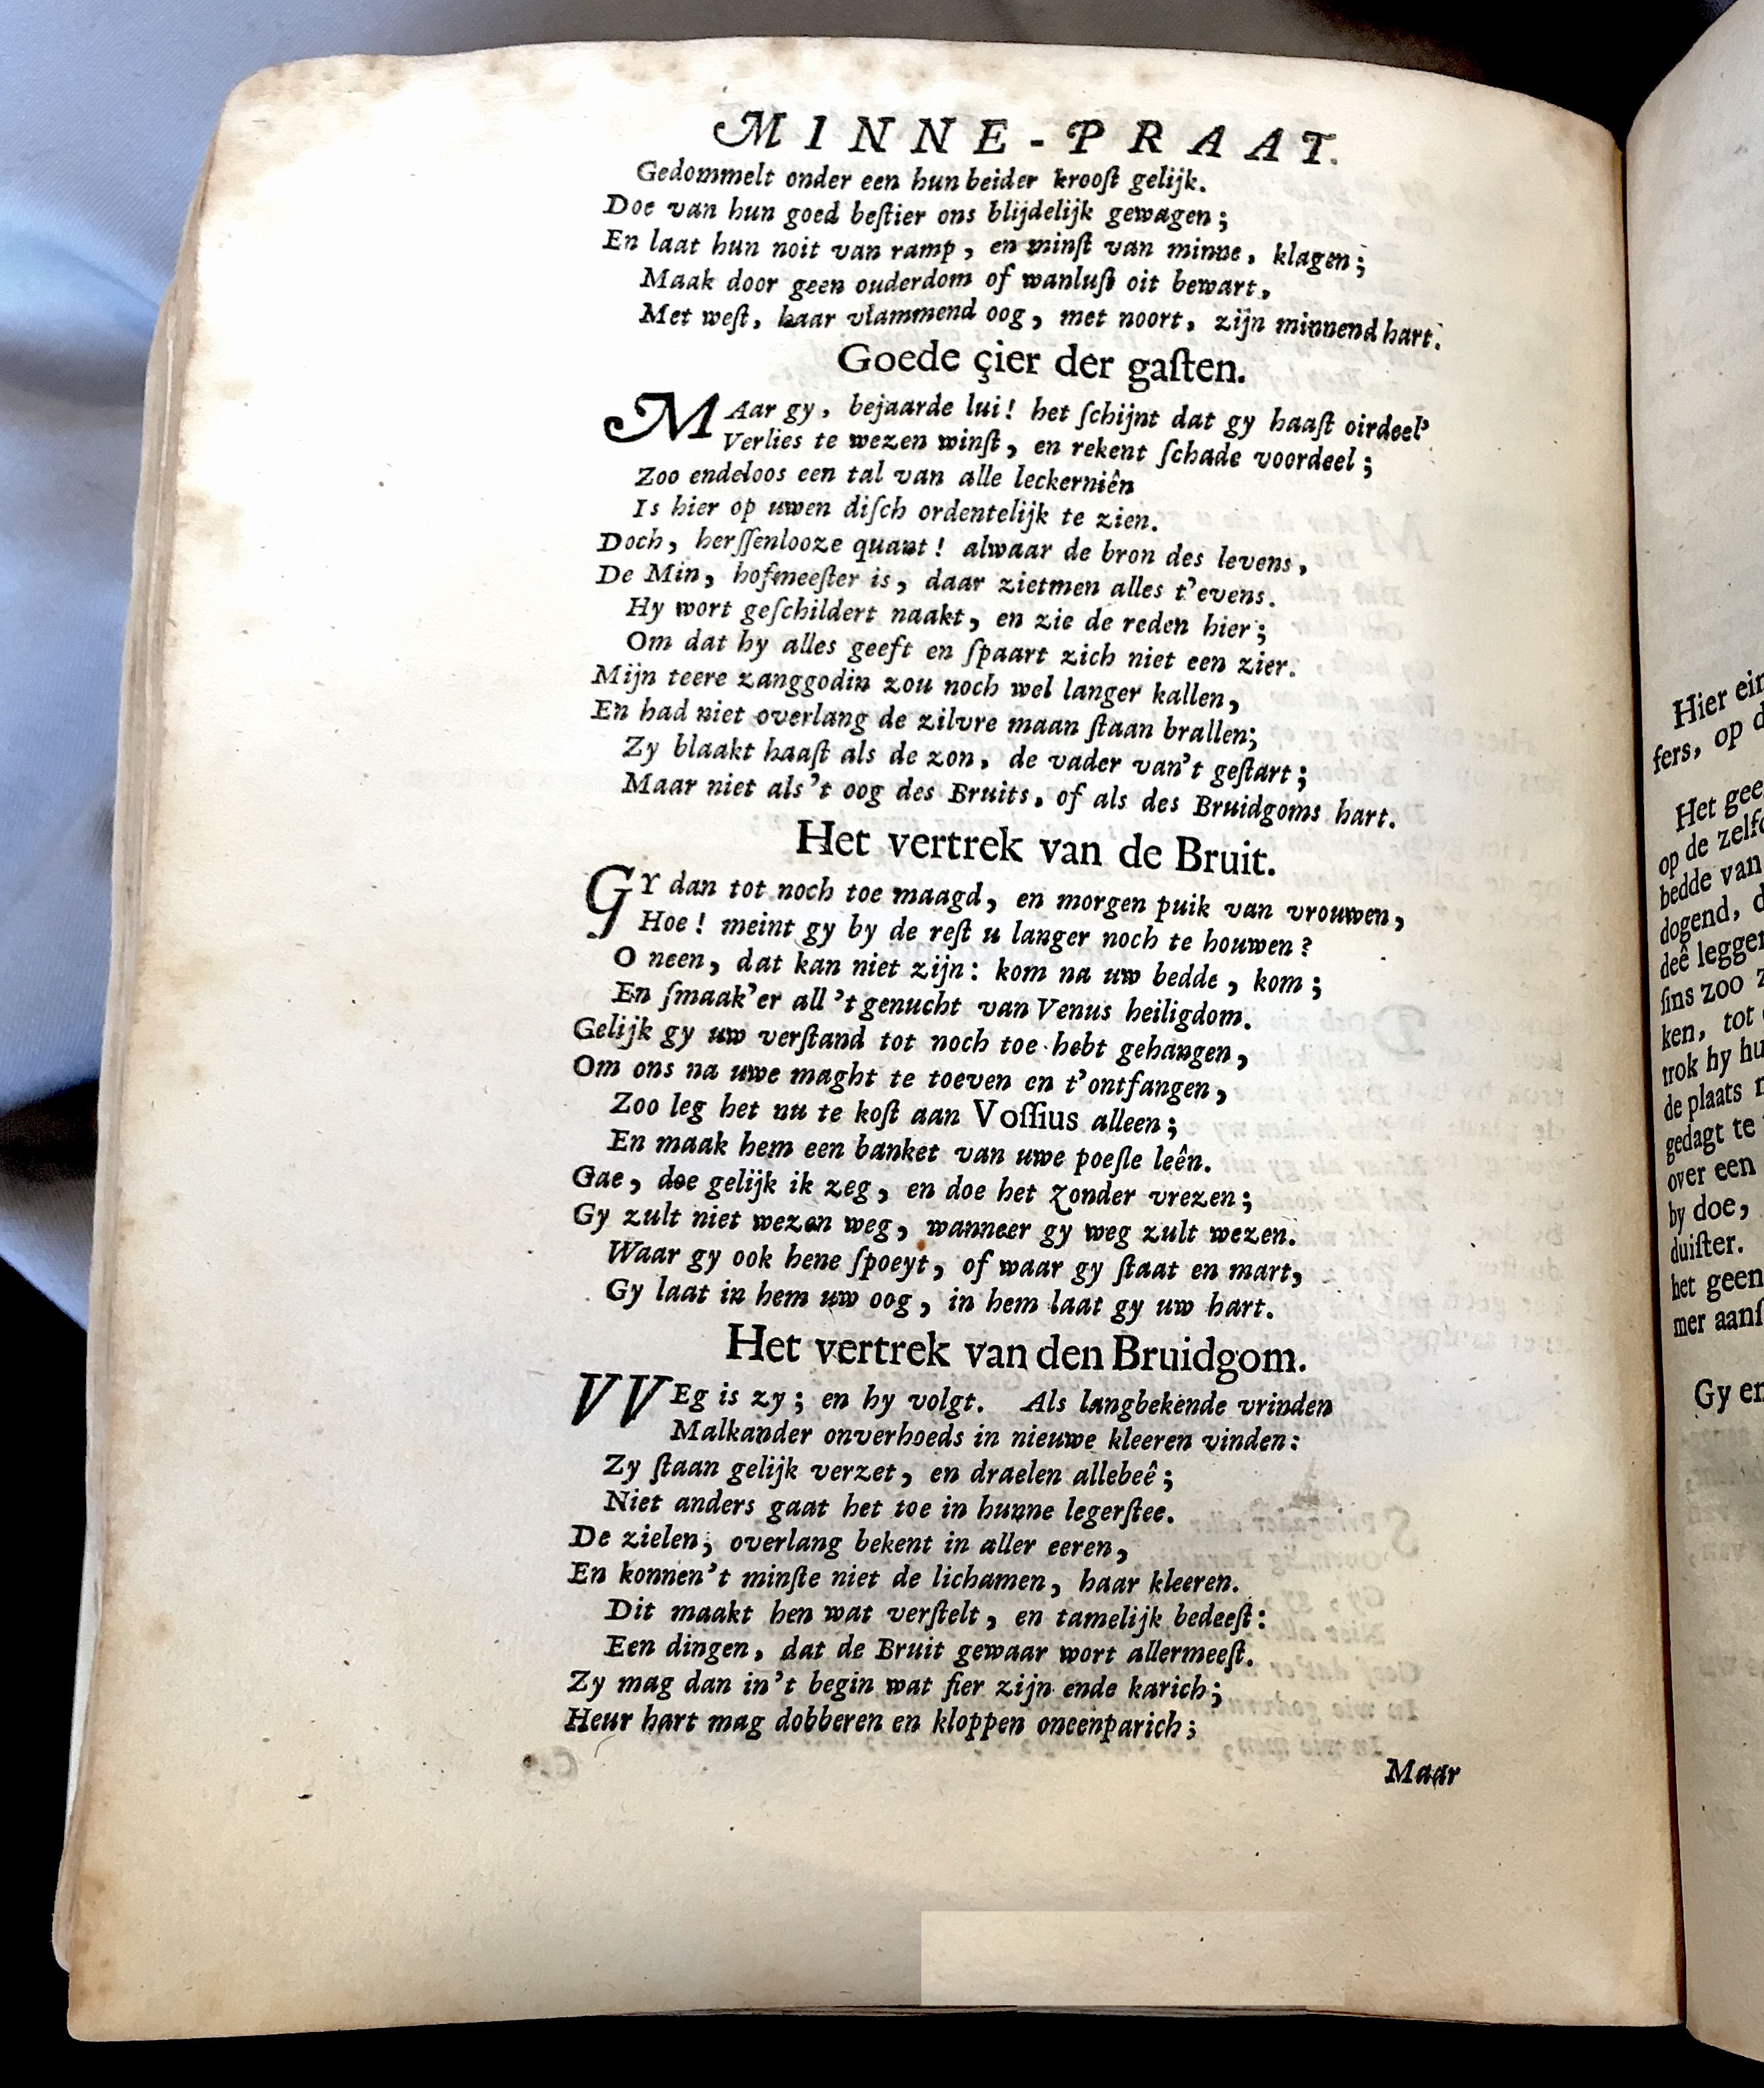 MINNE-PRAAT.
Gedommelt onder een hun beider krooſt gelijk.
Doe van hun goed beſtier ons blijdelijk gewagen;
En laat hun noit van ramp, en minſt van minne, klagen;
Maak door geen ouderdom of wanluſt oit bewart,
Met weſt, haar vlammend oog, met noort, zijn minnend hart.
Goede çier der gaſten.
MAar gy, bejaarde lui! het ſchijnt dat gy haaſt oirdeel'
Verlies te wezen winſt, en rekent ſchade voordeel;
Zoo endeloos een tal van alle leckerniên
Is hier op uwen diſch ordentelijk te zien.
Doch, herſſenlooze quant! alwaar de bron des levens,
De Min, hofmeeſter is, daar zietmen alles t'evens.
Hy wort geſchildert naakt, en zie de reden hier;
Om dat hy alles geeft en ſpaart zich niet een zier.
Mijn teere zanggodin zou noch wel langer kallen,
En had niet overlang de zilvre maan ſtaan brallen;
Zy blaakt haaſt als de zon, de vader van't geſtart;
Maar niet als't oog des Bruits, of als des Bruidgoms hart.
Het vertrek van de Bruit.
GY dan tot noch toe maagd, en morgen puik van vrouwen,
Hoe! meint gy by de reſt u langer noch te houwen?
O neen, dat kan niet zijn: kom na uw bedde, kom;
En ſmaak'er all 't genucht van Venus heiligdom.
Gelijk gy uw verſtand tot noch toe hebt gehangen,
Om ons na uwe maght te toeven en t'ontfangen,
Zoo leg het nu te koſt aan Voſſius alleen;
En maak hem een banket van uwe poeſle leên.
Gae, doe gelijk ik zeg, en doe het zonder vrezen;
Gy zult niet wezen weg, wanneer gy weg zult wezen.
Waar gy ook hene ſpoeyt, of waar gy ſtaat en mart,
Gy laat in hem uw oog, in hem laat gy uw hart.
Het vertrek van den Bruidgom.
VVEg is zy; en hy volgt. Als langbekende vrinden
Malkander onverhoeds in nieuwe kleeren vinden:
Zy ſtaan gelijk verzet, en draelen allebeê;
Niet anders gaat het toe in hunne legerſtee.
De zielen; overlang bekent in aller eeren,
En konnen't minſte niet de lichamen, haar kleeren.
Dit maakt hen wat verſtelt, en tamelijk bedeeſt:
Een dingen, dat de Bruit gewaar wort allermeeſt.
Zy mag dan in't begin wat fier zijn ende karich;
Heur hart mag dobberen en kloppen oneenparich;
Maar
Hier
fers, op
Het
op de
bedde van
dogend,
deê
ſins zoo
ken, tot
trok hy
de plaats
gedagt te
over een
by doe,
duiſter.
het geen
mer
Gy